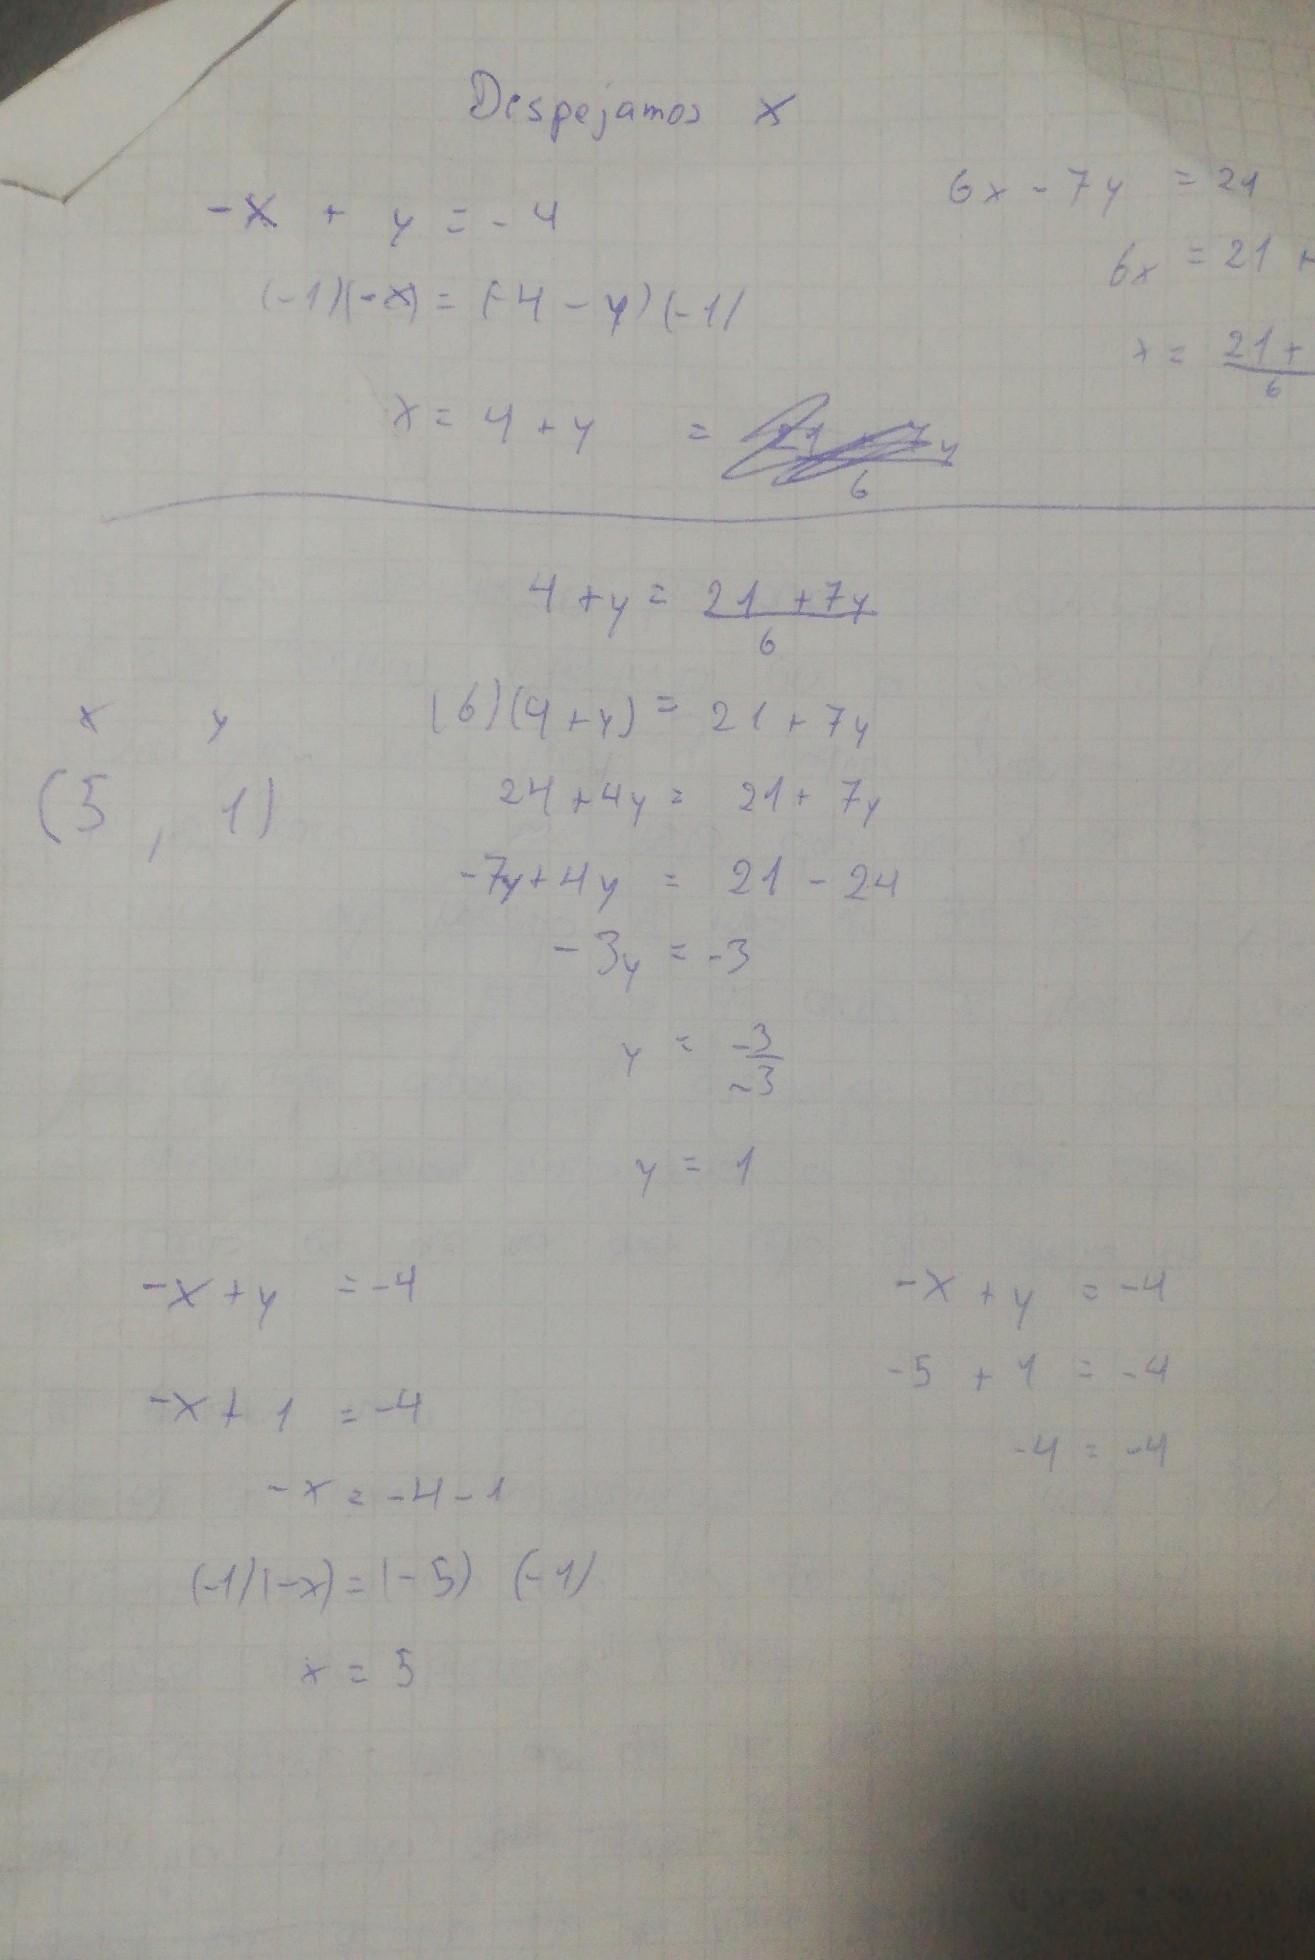 Despejamos x
-x + y = -4
(-1)(-x) = (-4 - y)(-1)
x = 4 + y =
6
6x - 7y = 21
6x = 21 +
x = 21 +
6
4 + y = 21 + 7y
6
(6)(4 + y) = 21 + 7y
24 + 4y = 21 + 7y
-7y + 4y = 21 - 24
-3y = -3
y = -3
-3
y = 1
x y
(5, 1)
-x + y = -4
-x + 1 = -4
-x = -4 - 1
(-1)(-x) = (-5) (-1)
x = 5
-x + y = -4
-5 + 1 = -4
-4 = -4